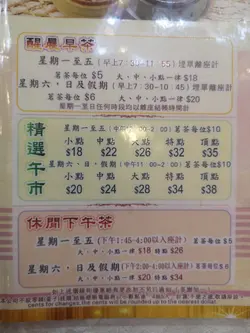 醒晨早茶
星期一至五(早上7:30-11:45)埋單離座計
茗茶每位 $5 大、中、小點一律$18
星期六、日及假期(早上7:30-10:45)
茗茶每位 $6 大、中、小點一律$20
精選午市
星期一至五 茗茶每位$10
小點 中點 大點 特點 頂點
$18 $22 $26 $32 $35
星期六、日、假期 茗茶每位$10
小點 中點 大點 特點 頂點
$20 $24 $28 $34 $38
休閒下午茶
星期一至五(下午1:45-4:00以入座計)
大、中、小點一律$18 特點$26
星期六、日及假期(下午2:00-4:00以入座計)
大、中、小點一律$20 特點$34